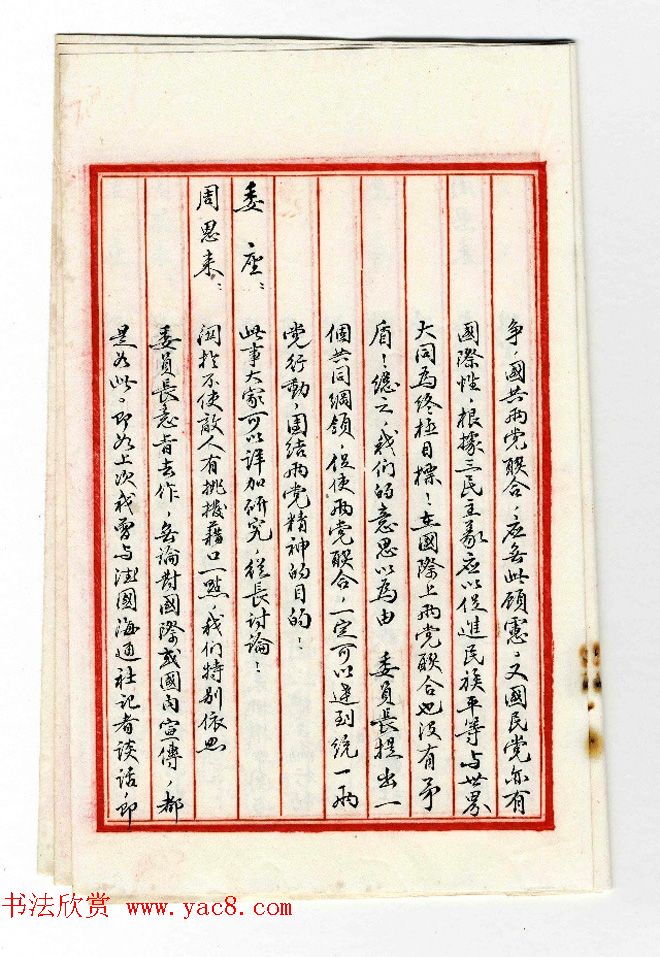 争，國共兩党联合，应無此顾慮。又國民党亦有
國際性，根據三民主义应以促進民族平等与世界
大同為终極目標！在國際上兩党联合也没有矛
盾！總之，我们的意思以為由 委員長提出一
個共同綱领，促使兩党联合，一定可以達到统一兩
党行動，團结兩党精神的目的！
委座：此事大家可以详加研究，從長讨論！
周恩来：関於不使敵人有挑撥藉口一點，我们特别依照
委員長意旨去作，無論对國際或國内宣傳，都
是如此。即如上次我曾与德國海通社记者谈话，即
书法欣赏 www.yac8.com